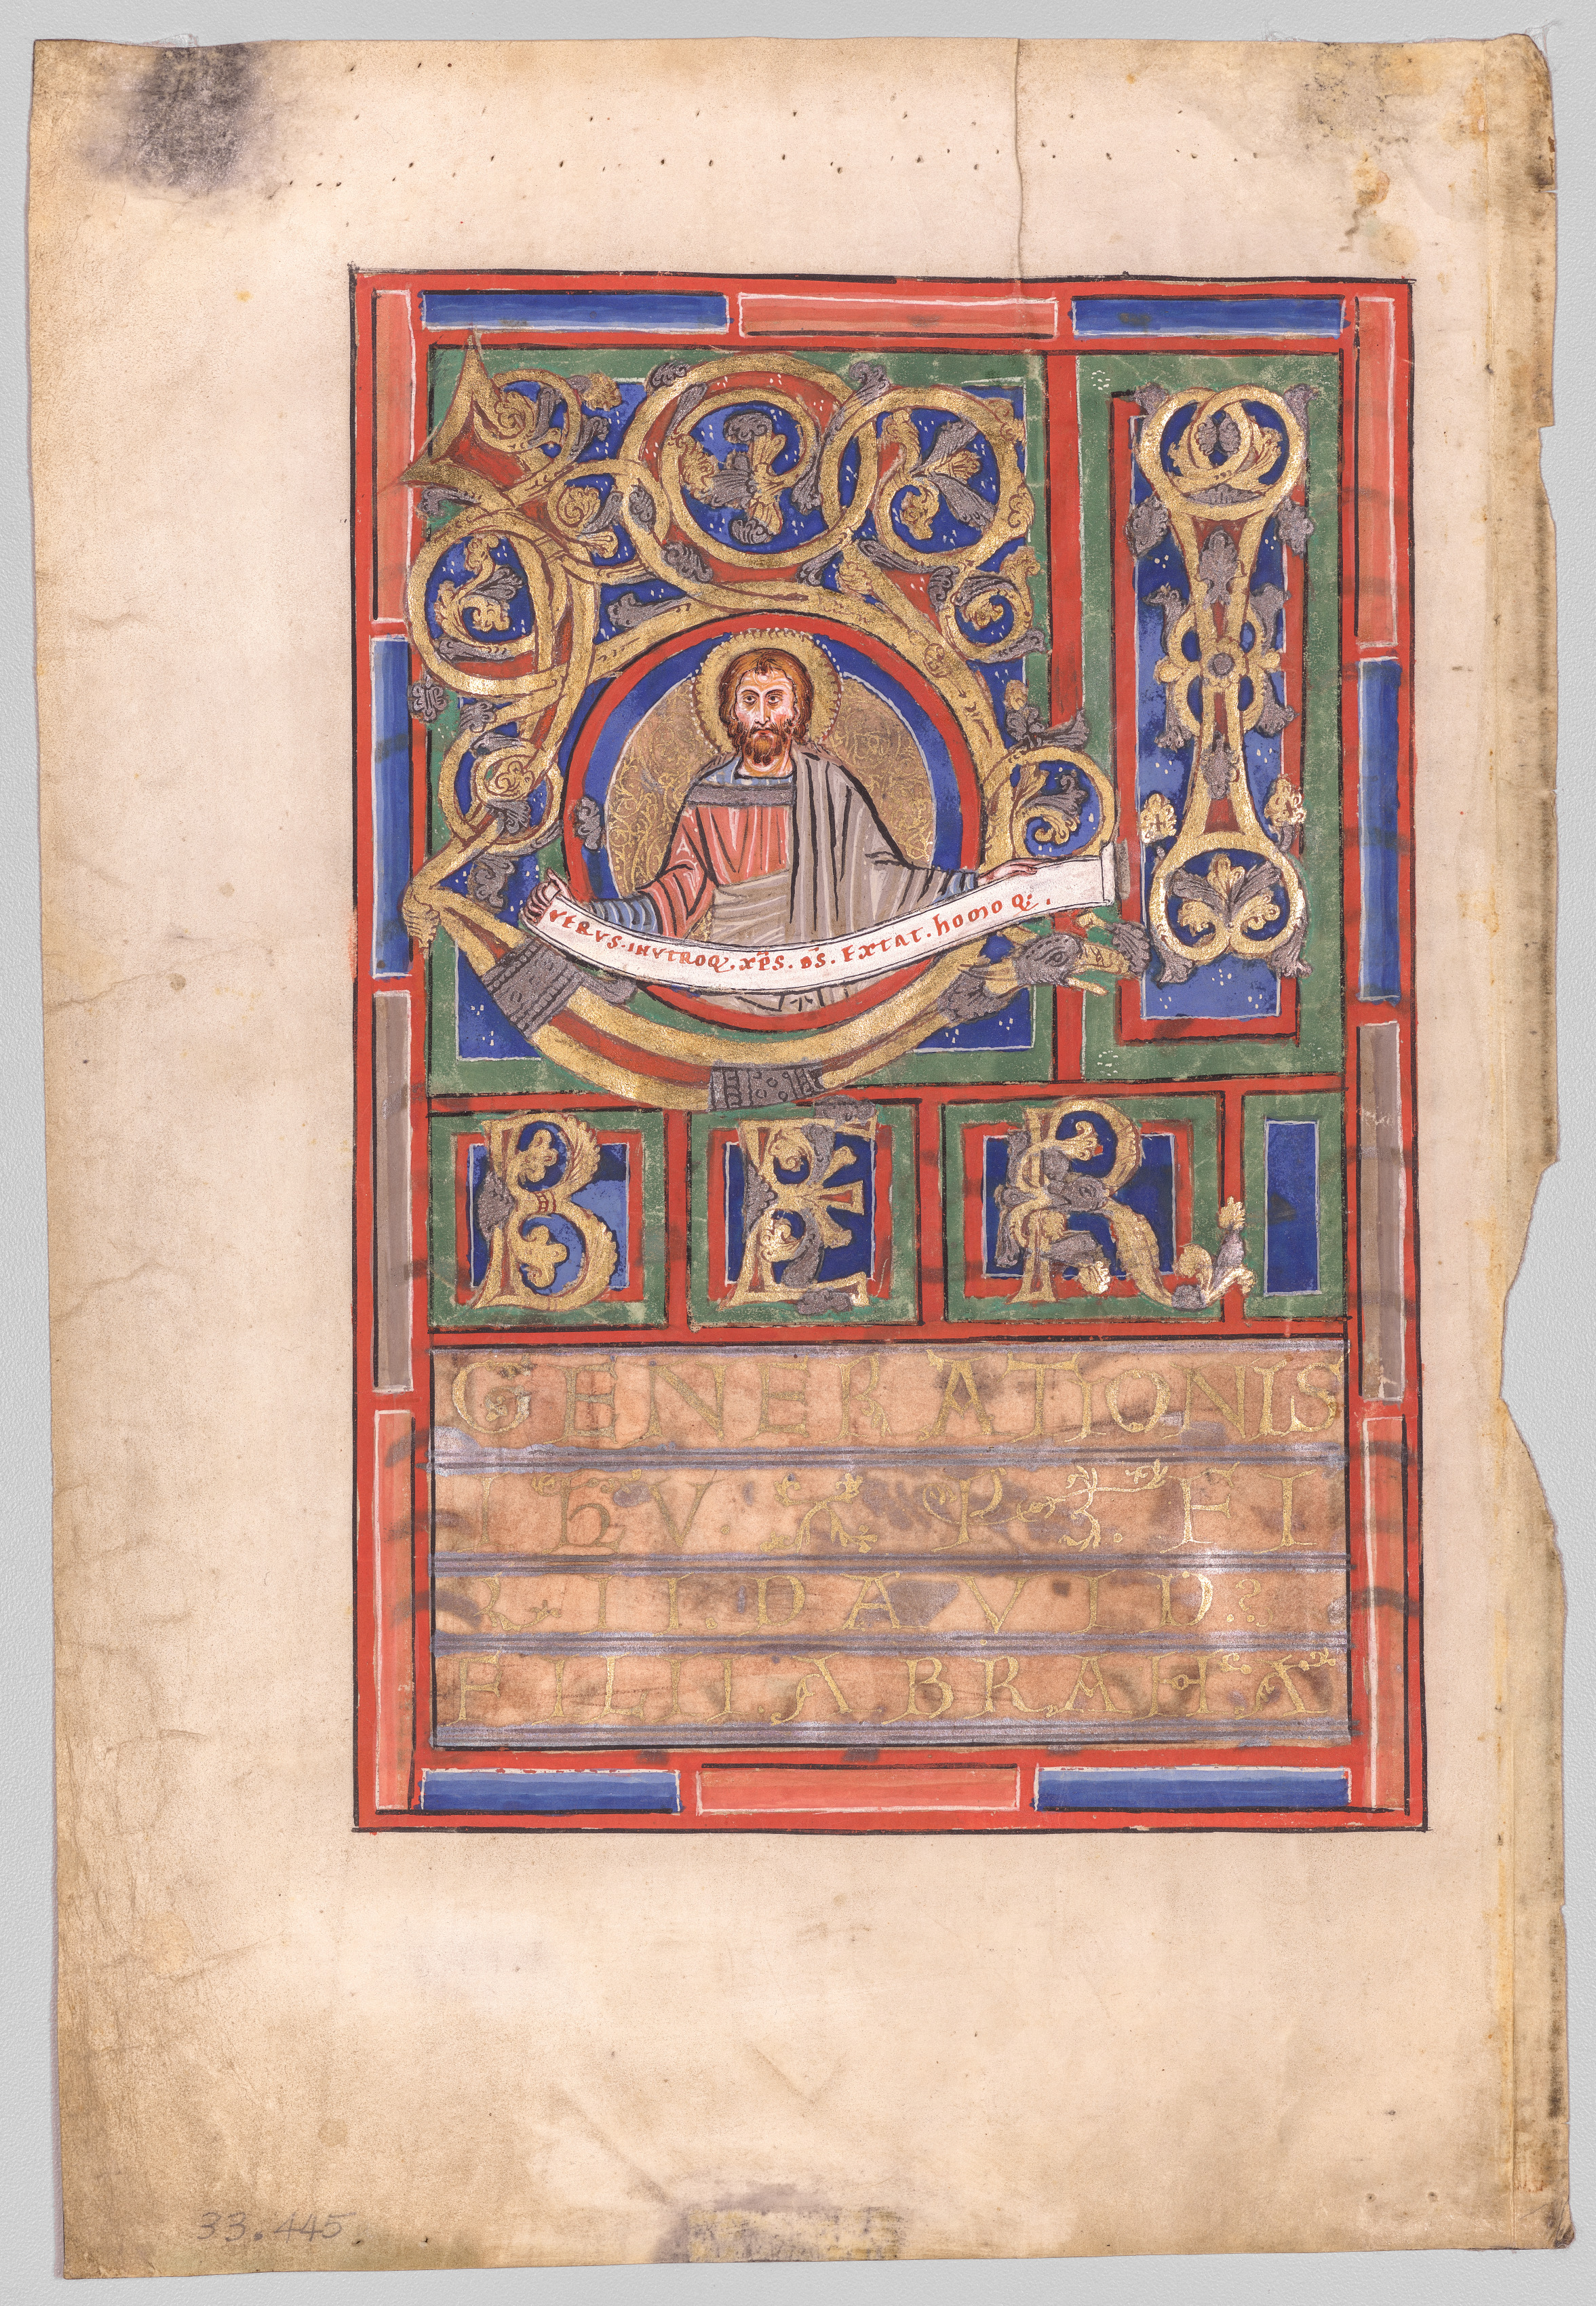 LI
VERVS. INVTROQ, XPS. DS. EXTAT. hOMO Q;.
BER
GENERATIONIS
IhV. XPI. FI
LII. DAVID?
FILII. ABRAHA
33.445